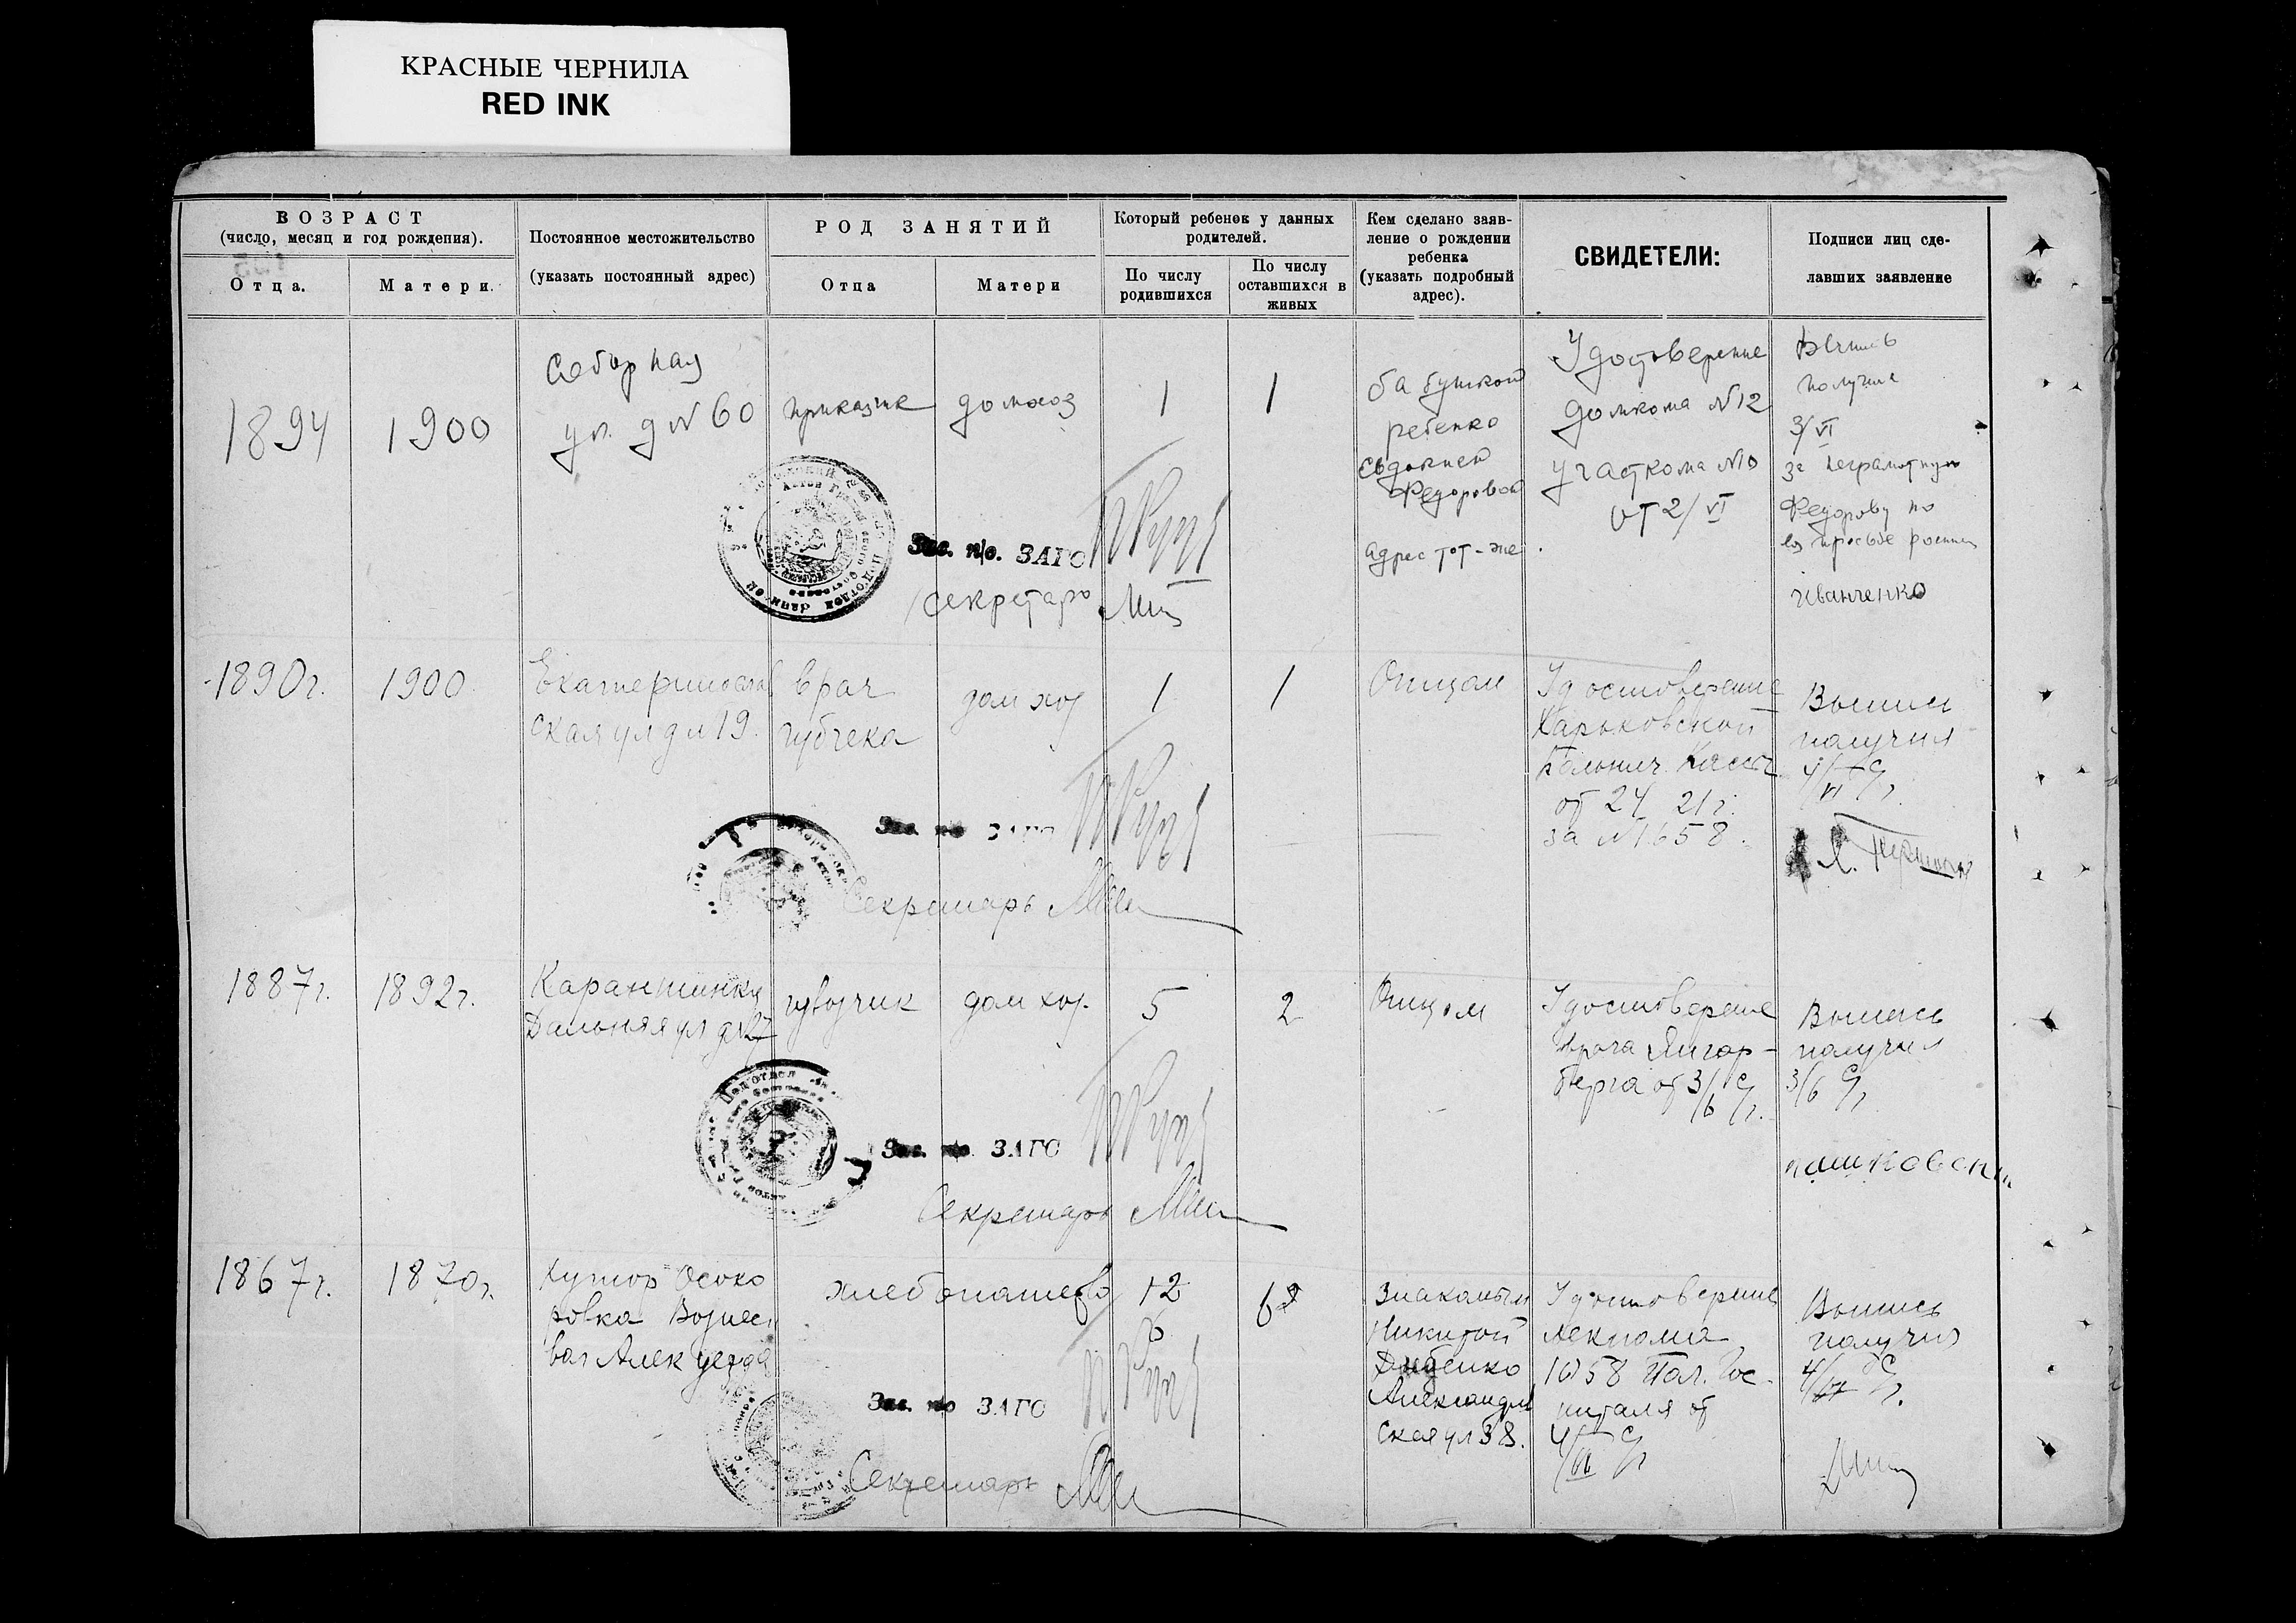 КРАСНЫЕ ЧЕРНИЛА
RED INK
ВОЗРАСТ
(число, месяц и год рождения).
Отца.
Матери.
Постоянное местожительство
(указать постоянный адрес)
РОД ЗАНЯТИЙ
Отца
Матери
Который ребенок у данных
родителей.
По числу
родившихся
По числу
оставшихся в
живых
Кем сделано заяв-
ление о рождении
ребенка
(указать подробный
адрес).
СВИДЕТЕЛИ:
Подписи лиц сде-
лавших заявление
1894
1900
Соборная
ул. д № 60
приказчик
домохоз
1
1
бабушкой
ребенка
Евдокией
Федоровой
адрес тот-же
Удостоверение
домкома №12
участкома №10
от 2/VI
получила
3/VI
за неграмотную
Федорову по
ее просьбе
Иванченко
Зав. п/о. ЗАГС
Секретарь
1890г.
1900
Екатеринослав
ская ул д № 19.
врач
губчека
дом хоз
1
1
Отцом
Удостоверение
Харьковской
Больнич. Кассы
от 24 21г.
за № 1658.
Выпись
получил
4/VI с/г.
Зав. п/о ЗАГС
Секретарь
1887г.
1892г.
Карантинка
Дальняя ул д №27
извозчик
дом хоз.
5
2
Отцом
Удостоверение
врача
берга от 3/6 с/г.
Выпись
получил
3/6 с/г
Зав. п/о ЗАГС
Секретарь
1867г.
1870г.
Хутор Осоко
ровка Вознес
вол Алек уезда
хлебопашество
12
6
Знакомым
Никитой
Дыбенко
Александров
ская ул 38.
Удостоверение
лекпома
1058 Пол. Гос-
питаля от
4/VI с/г
Выпись
получил
4/VI с/г.
Зав. п/о ЗАГС
Секретарь